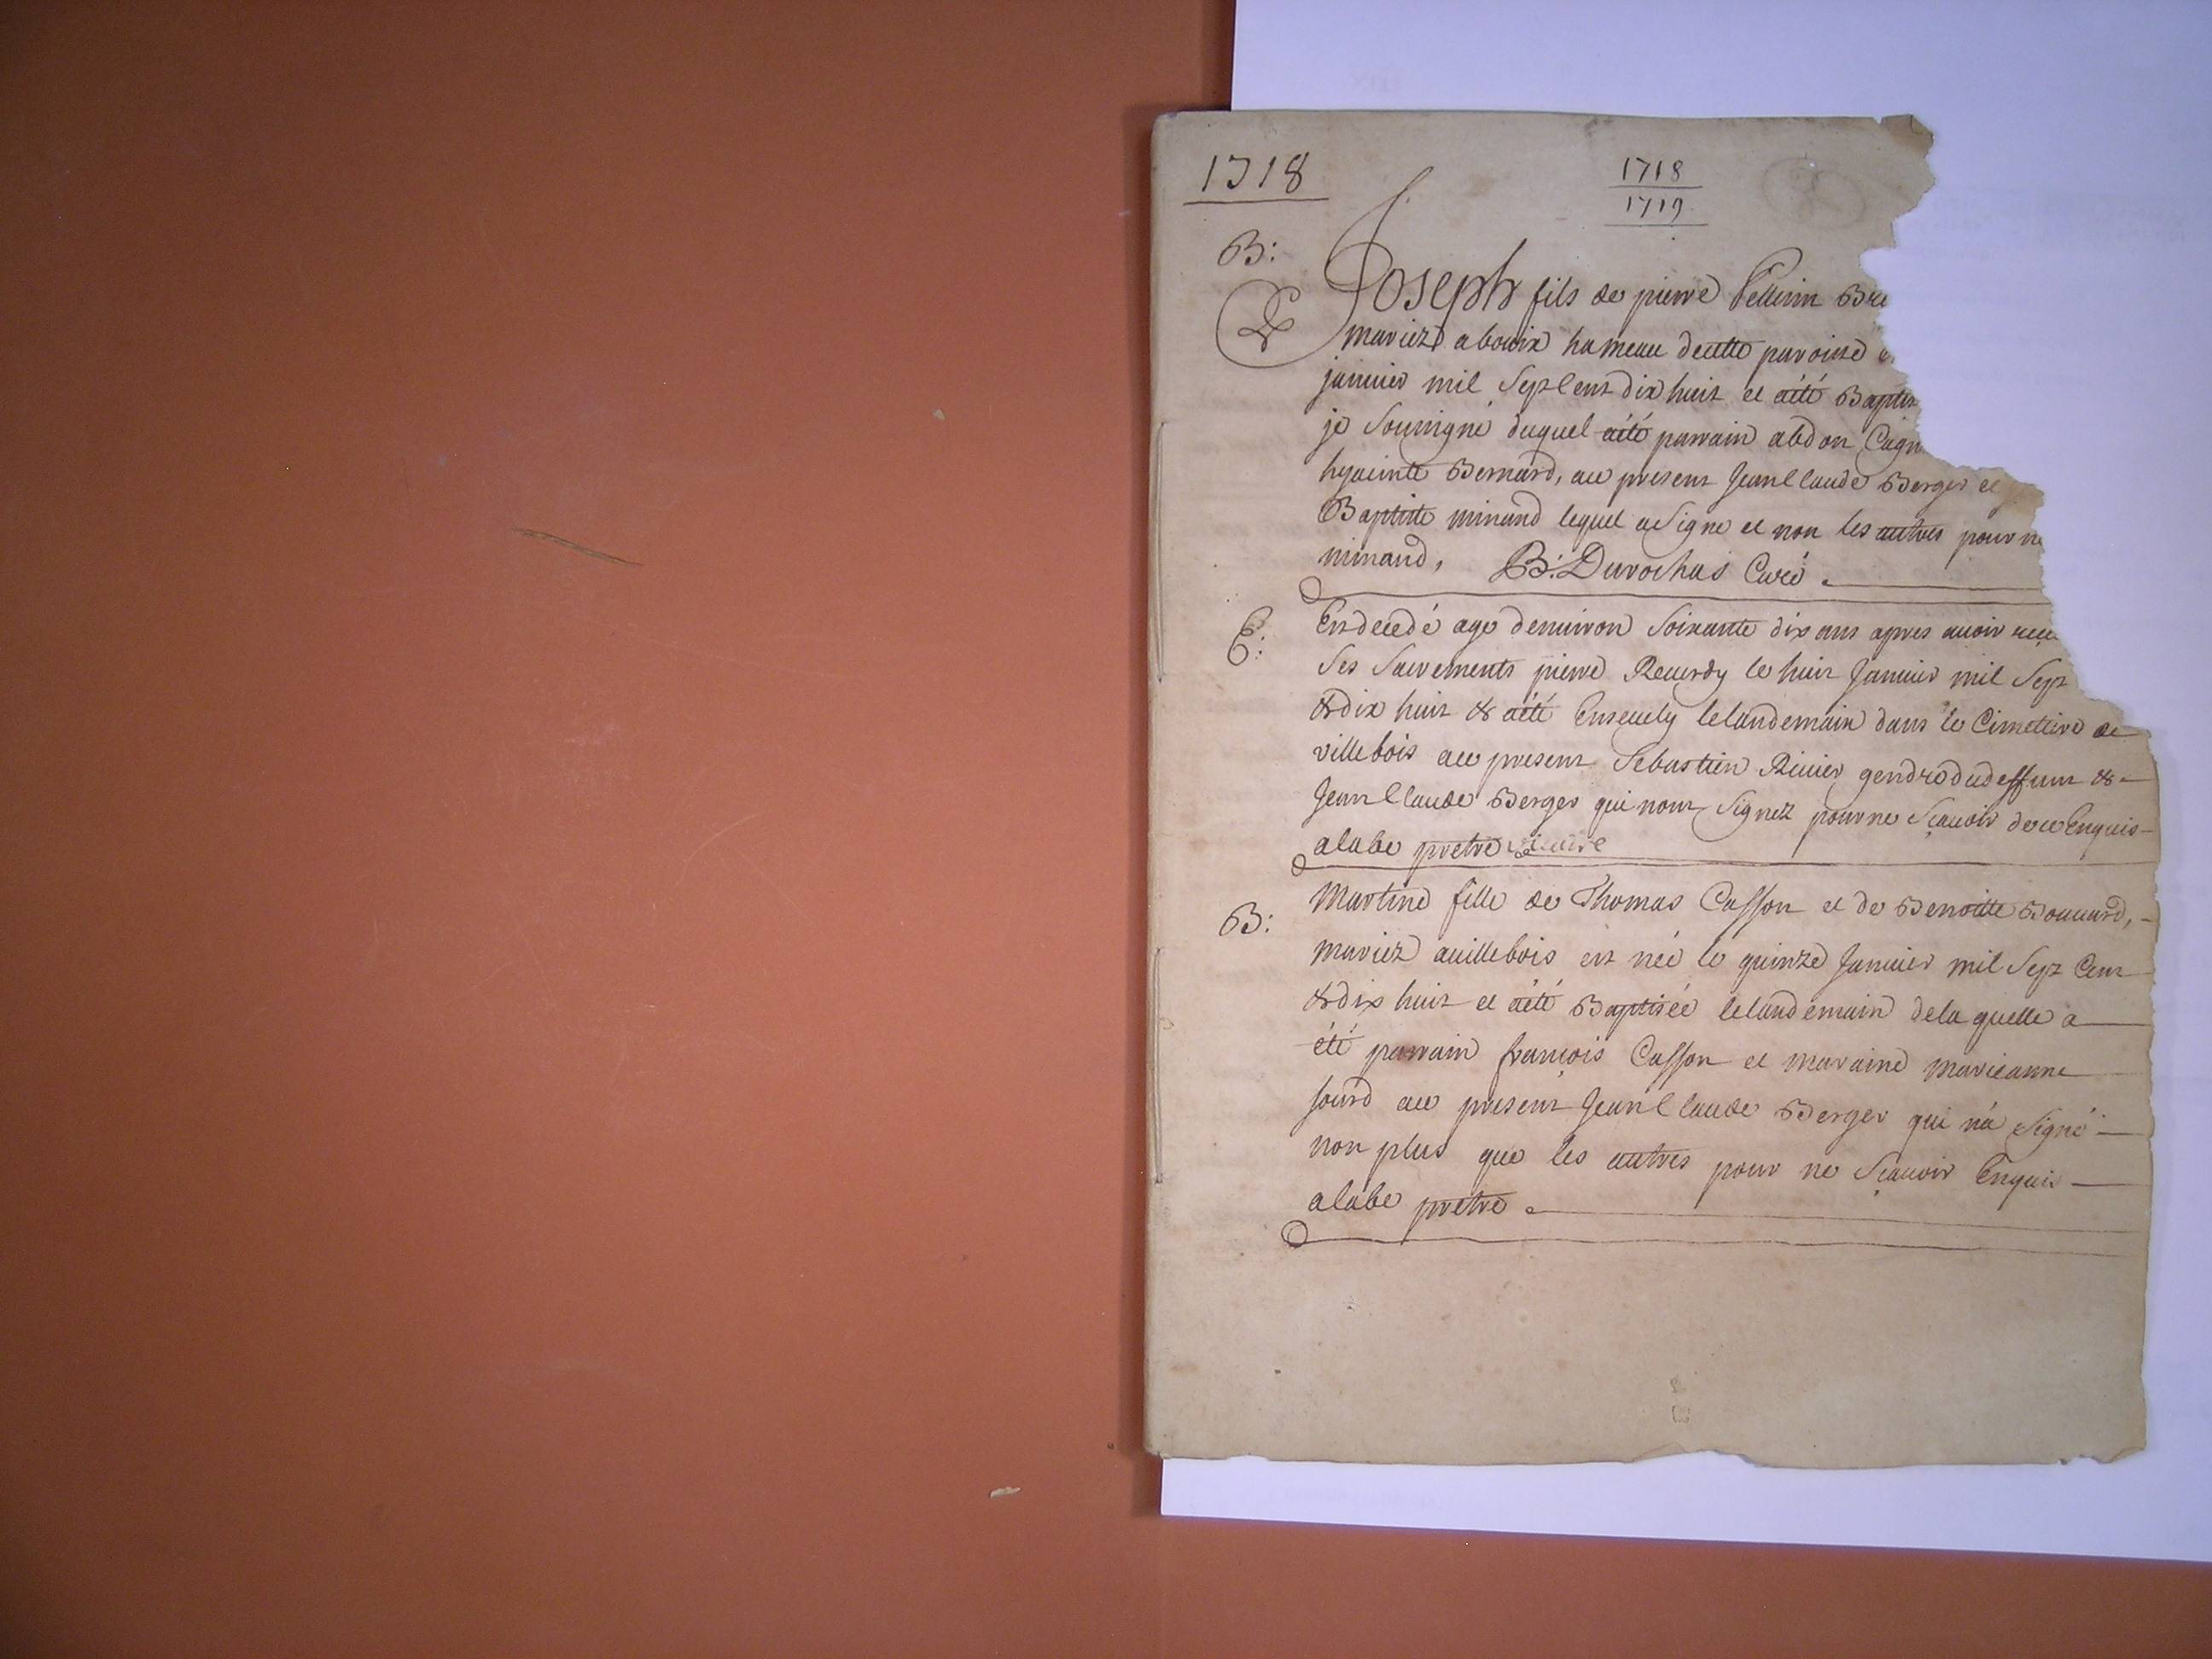 1718
1718
1719
B:
Joseph fils de pierre Pellerin Bre
mariez a bouix hameau decette paroisse
januier mil Sept Cent dix huit et aété Baptis
je Sousigné duquel aété parrain abdon Cagn
hyacinte Bernard, au present Jean Claude Berger et
Baptiste minand lequel a Signe et non les autres pour ne
minand, B: Durochas Curé
E:
Est decedé agé denuiron Soixante dix ans apres auoir receu
Ses Sacrements pierre Reuerdy le huit Januier mil Sept
& dix huit & aété Enseuely lelandemain dans le Cimettiere de
villebois au present Sebastien Riuier gendre du deffunt &
Jean Claude Berger qui nont Signez pour ne Sçauoir de ce Enquis
alabe pretre vicaire
B:
Martine fille de Thomas Casson et de Benoitte Bouuard,
mariez auillebois est née le quinze Januier mil Sept Cent
& dix huit et aété Baptisée lelandemain de la quelle a
été parrain françois Casson et maraine marieanne
sourd au present Jean Claude Berger qui n'a Signé
non plus que les autres pour ne Sçauoir Enquis
alabe pretre